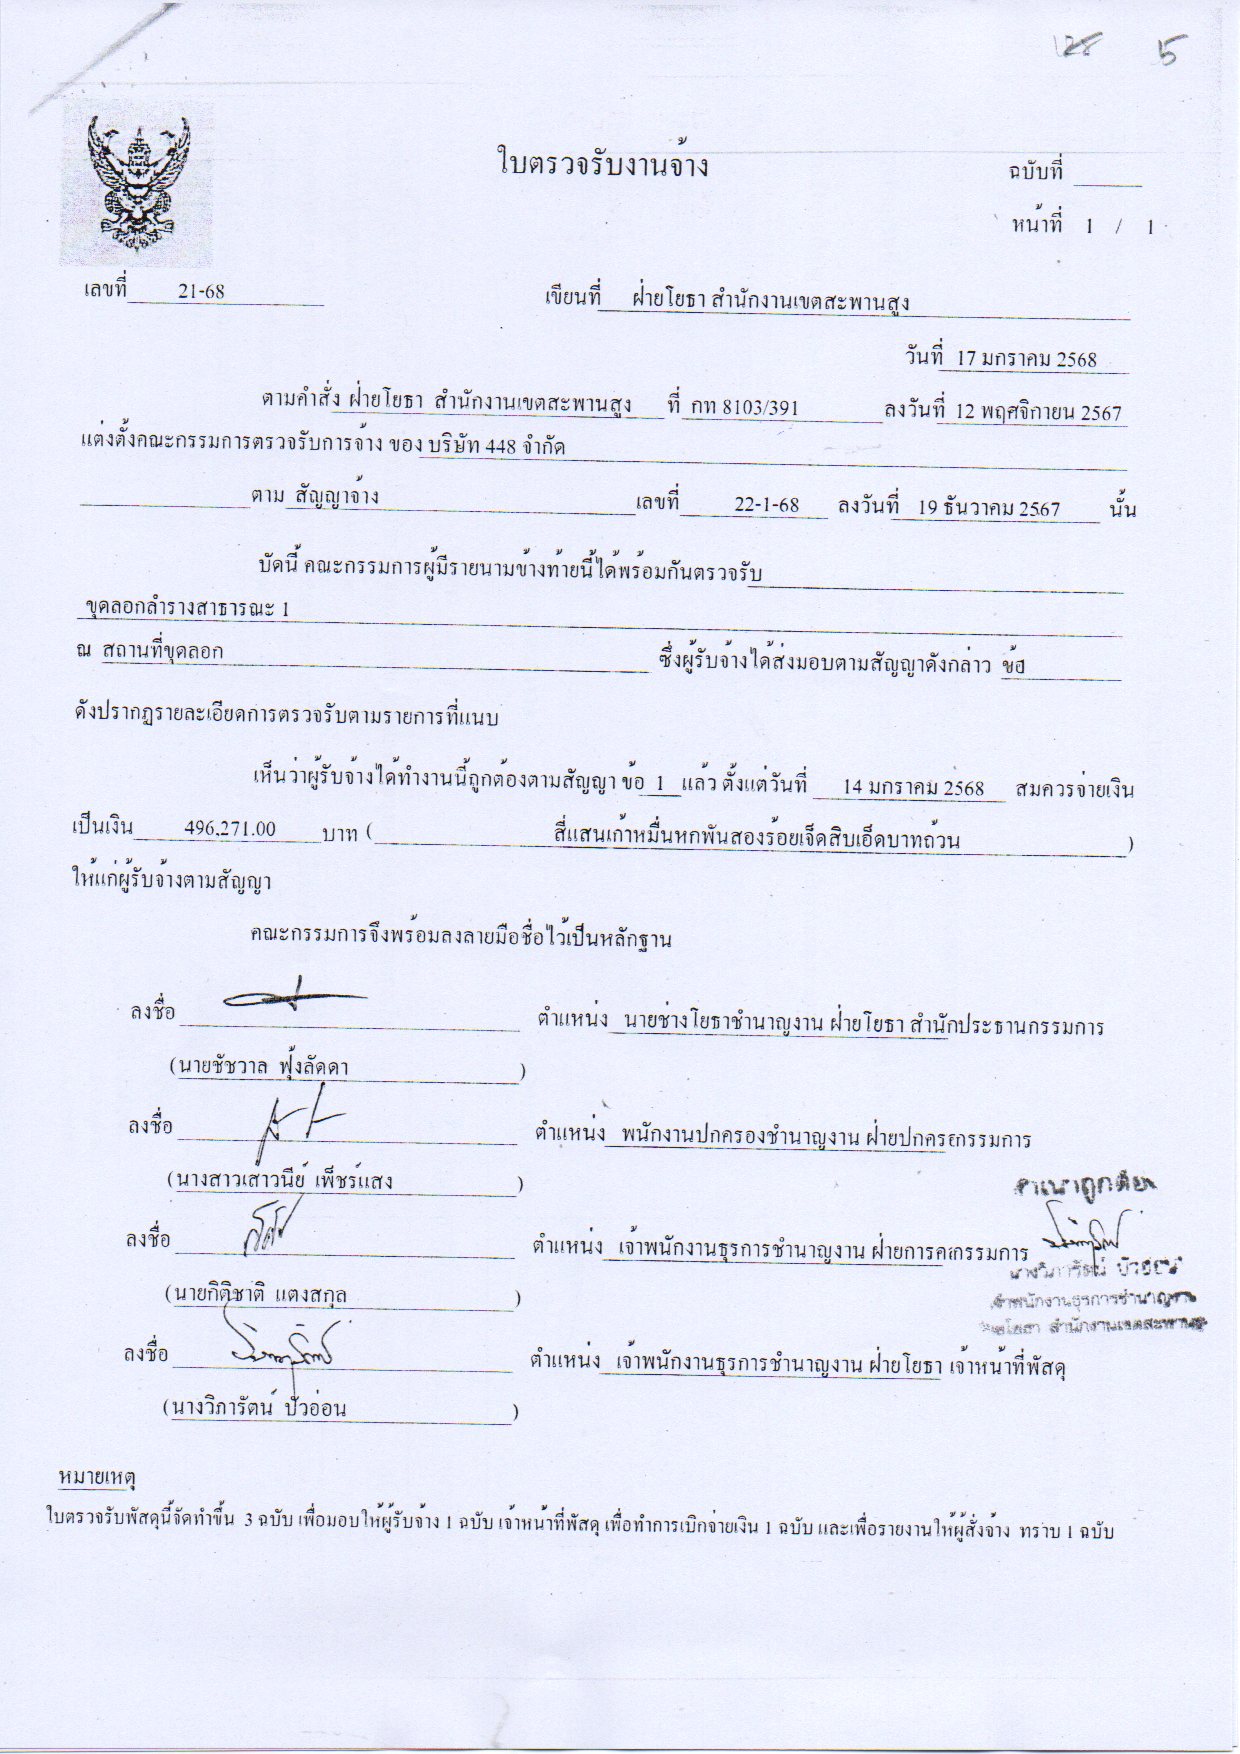 5
ใบตรวจรับงานจ้าง
ฉบับที่
หน้าที่ 1 / 1
เลขที่ 21-68
เขียนที่ ฝ่ายโยธา สำนักงานเขตสะพานสูง
วันที่ 17 มกราคม 2568
ตามคำสั่ง ฝ่ายโยธา สำนักงานเขตสะพานสูง ที่ กท 8103/391 ลงวันที่ 12 พฤศจิกายน 2567
แต่งตั้งคณะกรรมการตรวจรับการจ้าง ของ บริษัท 448 จำกัด
ตาม สัญญาจ้าง เลขที่ 22-1-68 ลงวันที่ 19 ธันวาคม 2567 นั้น
บัดนี้ คณะกรรมการผู้มีรายนามข้างท้ายนี้ได้พร้อมกันตรวจรับ
ขุดลอกลำรางสาธารณะ 1
ณ สถานที่ขุดลอก ซึ่งผู้รับจ้างได้ส่งมอบตามสัญญาดังกล่าว ข้อ
ดังปรากฏรายละเอียดการตรวจรับตามรายการที่แนบ
เห็นว่าผู้รับจ้างได้ทำงานนี้ถูกต้องตามสัญญา ข้อ 1 แล้ว ตั้งแต่วันที่ 14 มกราคม 2568 สมควรจ่ายเงิน
เป็นเงิน 496,271.00 บาท ( สี่แสนเก้าหมื่นหกพันสองร้อยเจ็ดสิบเอ็ดบาทถ้วน )
ให้แก่ผู้รับจ้างตามสัญญา
คณะกรรมการจึงพร้อมลงลายมือชื่อไว้เป็นหลักฐาน
ลงชื่อ ตำแหน่ง นายช่างโยธาชำนาญงาน ฝ่ายโยธา สำนักประธานกรรมการ
(นายชัชวาล ฟุ้งลัดดา )
ลงชื่อ ตำแหน่ง พนักงานปกครองชำนาญงาน ฝ่ายปกครอกรรมการ
(นางสาวเสาวนีย์ เพ็ชร์แสง )
สำเนาถูกต้อง
ลงชื่อ ตำแหน่ง เจ้าพนักงานธุรการชำนาญงาน ฝ่ายการคลกรรมการ
นางวิภารัตน์ บัวอ่อน
(นายกิติชาติ แตงสกุล )
เจ้าพนักงานธุรการชำนาญงาน
ฝ่ายโยธา สำนักงานเขตสะพานสูง
ลงชื่อ ตำแหน่ง เจ้าพนักงานธุรการชำนาญงาน ฝ่ายโยธา เจ้าหน้าที่พัสดุ
(นางวิภารัตน์ บัวอ่อน )
หมายเหตุ
ใบตรวจรับพัสดุนี้จัดทำขึ้น 3 ฉบับ เพื่อมอบให้ผู้รับจ้าง 1 ฉบับ เจ้าหน้าที่พัสดุ เพื่อทำการเบิกจ่ายเงิน 1 ฉบับ และเพื่อรายงานให้ผู้สั่งจ้าง ทราบ 1 ฉบับ